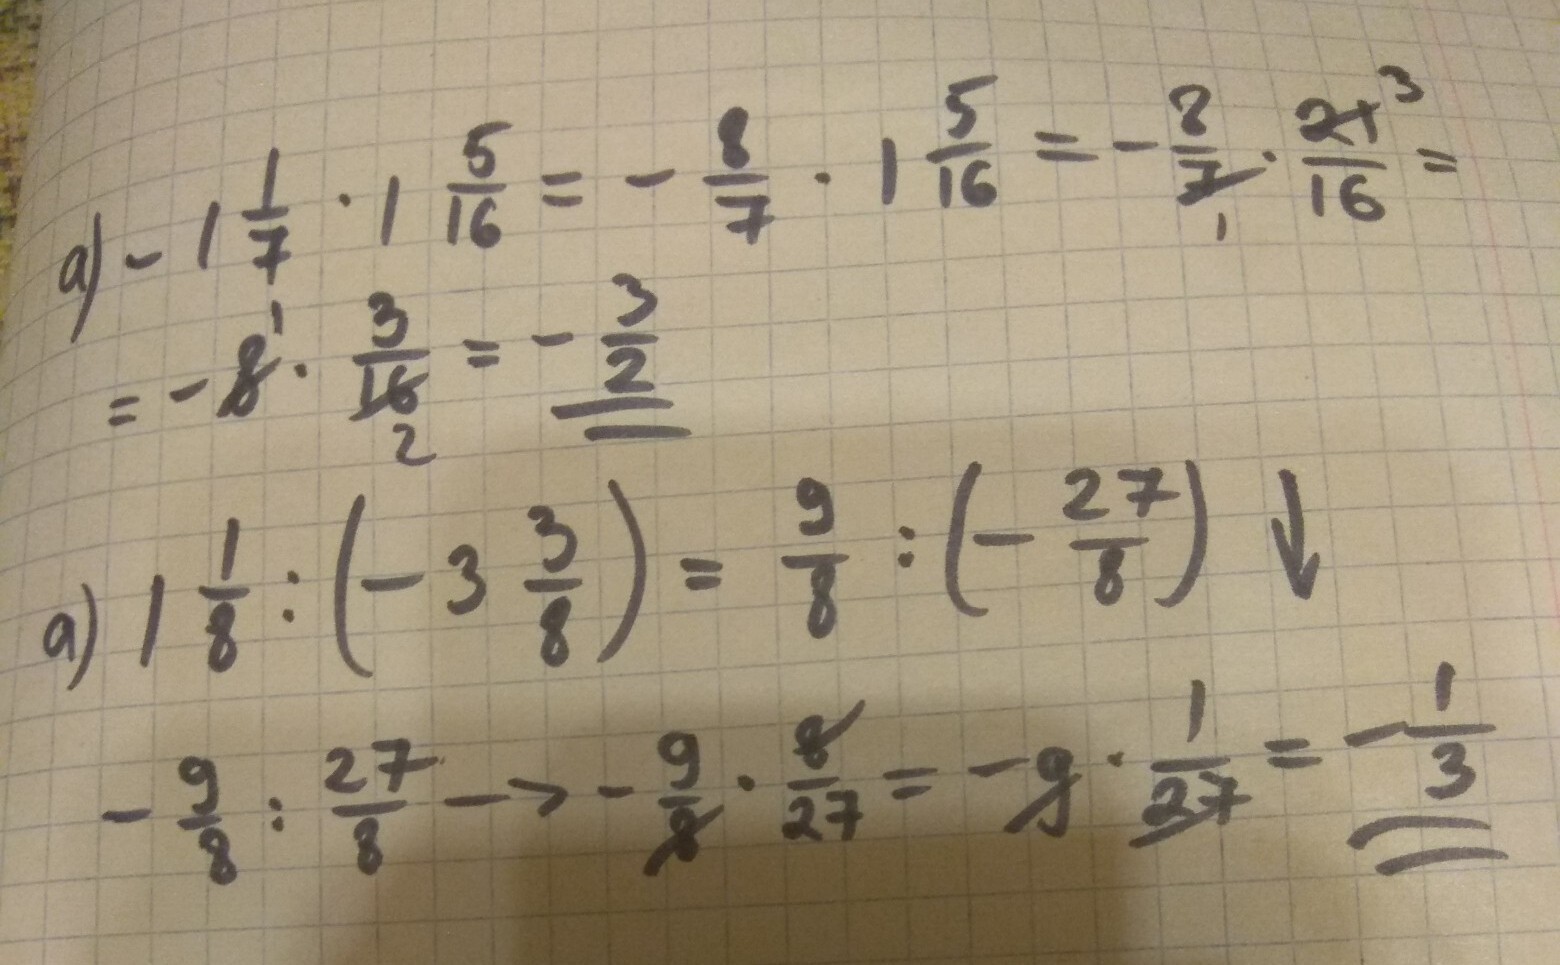 a) - 1 1/7 · 1 5/16 = - 8/7 · 1 5/16 = - 8/7 1 · 21 3/16 =
= - 8 1 · 3/16 2 = - 3/2
a) 1 1/8 : (- 3 3/8) = 9/8 : (- 27/8) ↓
- 9/8 : 27/8 -> - 9/8 · 8/27 = - 9 · 1/27 = - 1/3